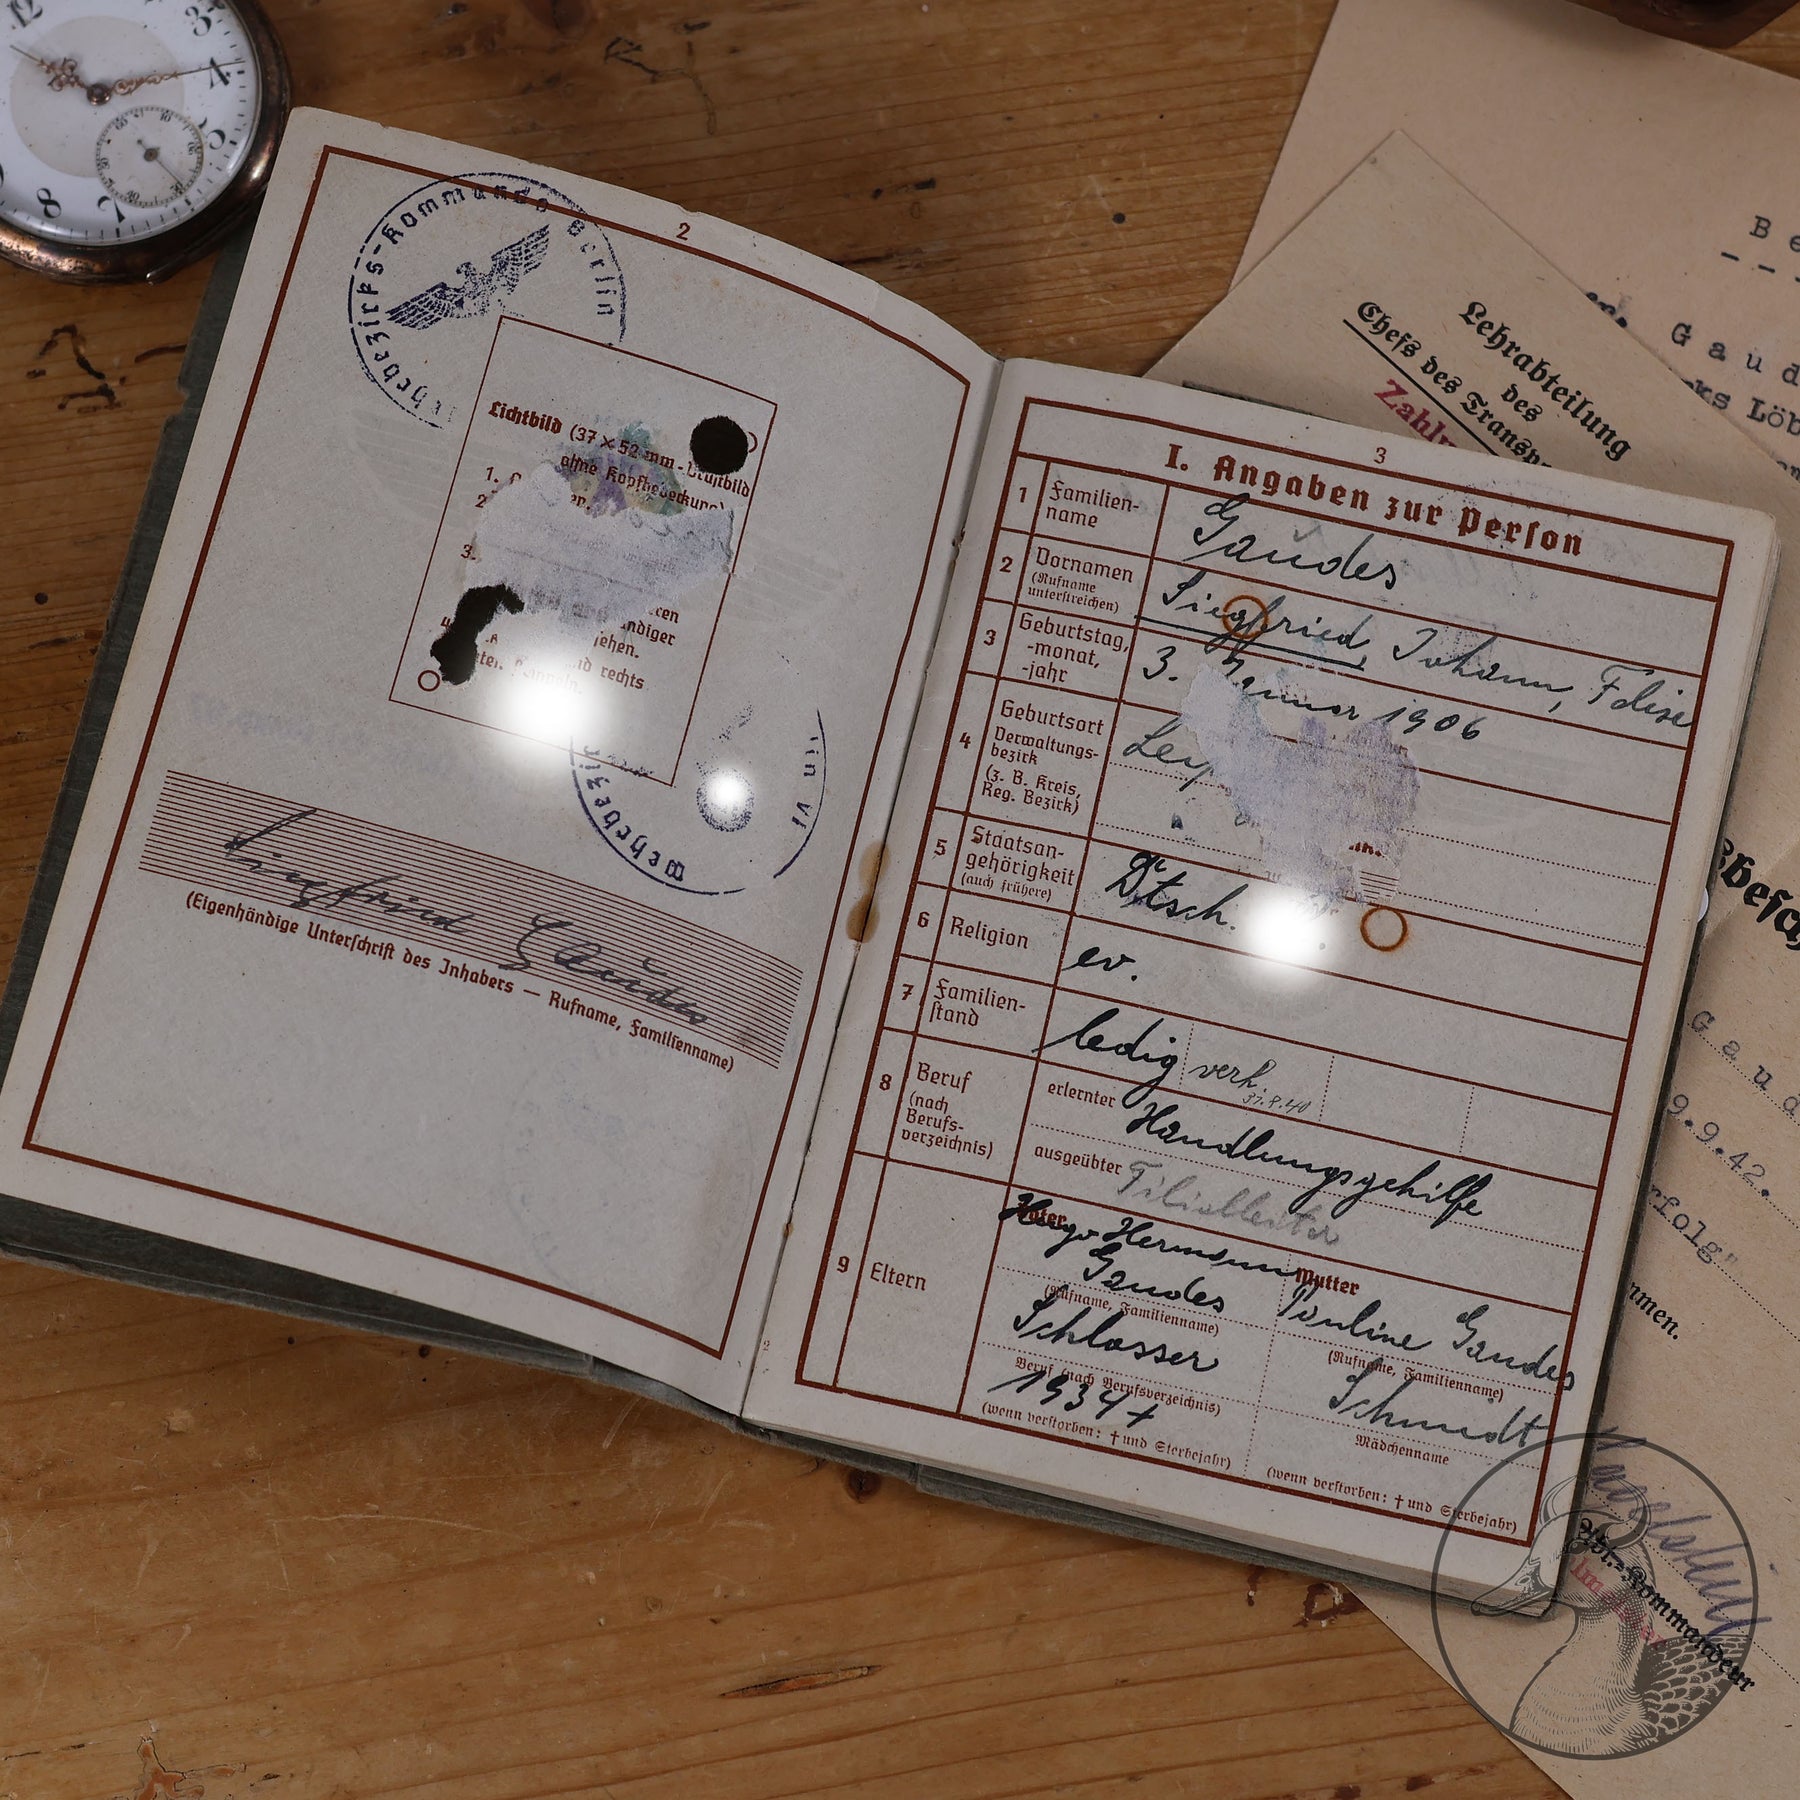 12
3
4
5
7
8
60
10
20
2
Wehrbezirks-Kommando Berlin
Lichtbild (37 × 52 mm-Brustbild
ohne Kopfbedeckung)
1.
2
3.
ren
ndiger
4.
ehen.
ten.
nd rechts
Wehrbezir
in VI
Siegfried Gaudes
(Eigenhändige Unterschrift des Inhabers — Rufname, Familienname)
3
I. Angaben zur Person
1 Familien-
name
Gaudes
2 Vornamen
(Rufname
unterstreichen)
Siegfried, Johann, Felix
3 Geburtstag,
-monat,
-jahr
3. Januar 1906
4 Geburtsort
Verwaltungs-
bezirk
(z. B. Kreis,
Reg. Bezirk)
5 Staatsan-
gehörigkeit
(auch frühere)
Dtsch.
6 Religion
ev.
7 Familien-
stand
ledig verh.
31.8.40
8 Beruf
(nach
Berufs-
verzeichnis)
erlernter Handlungsgehilfe
ausgeübter Filialleiter
9 Eltern
Vater
Hugo Hermann
Gaudes
(Rufname, Familienname)
Schlosser
Beruf (nach Berufsverzeichnis)
1934 +
(wenn verstorben: † und Sterbejahr)
Mutter
Pauline Gaudes
(Rufname, Familienname)
Schmidt
Mädchenname
(wenn verstorben: † und Sterbejahr)
Be
Gaud
ks Löb
Lehrabteilung
des
Chefs des Transp
Zahlm
sbesch
Gaud
9.9.42.
rfolg"
mmen.
Abt.-Kommandeur